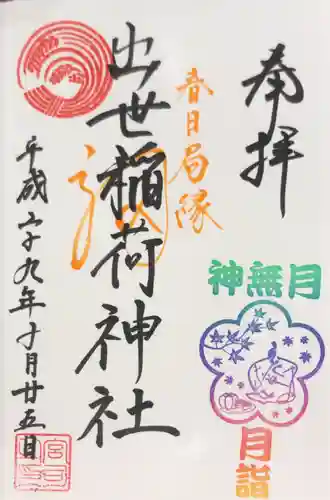 奉拝
神無月
月詣
春日局隊
出世稲荷神社
平成二十九年十月廿五日